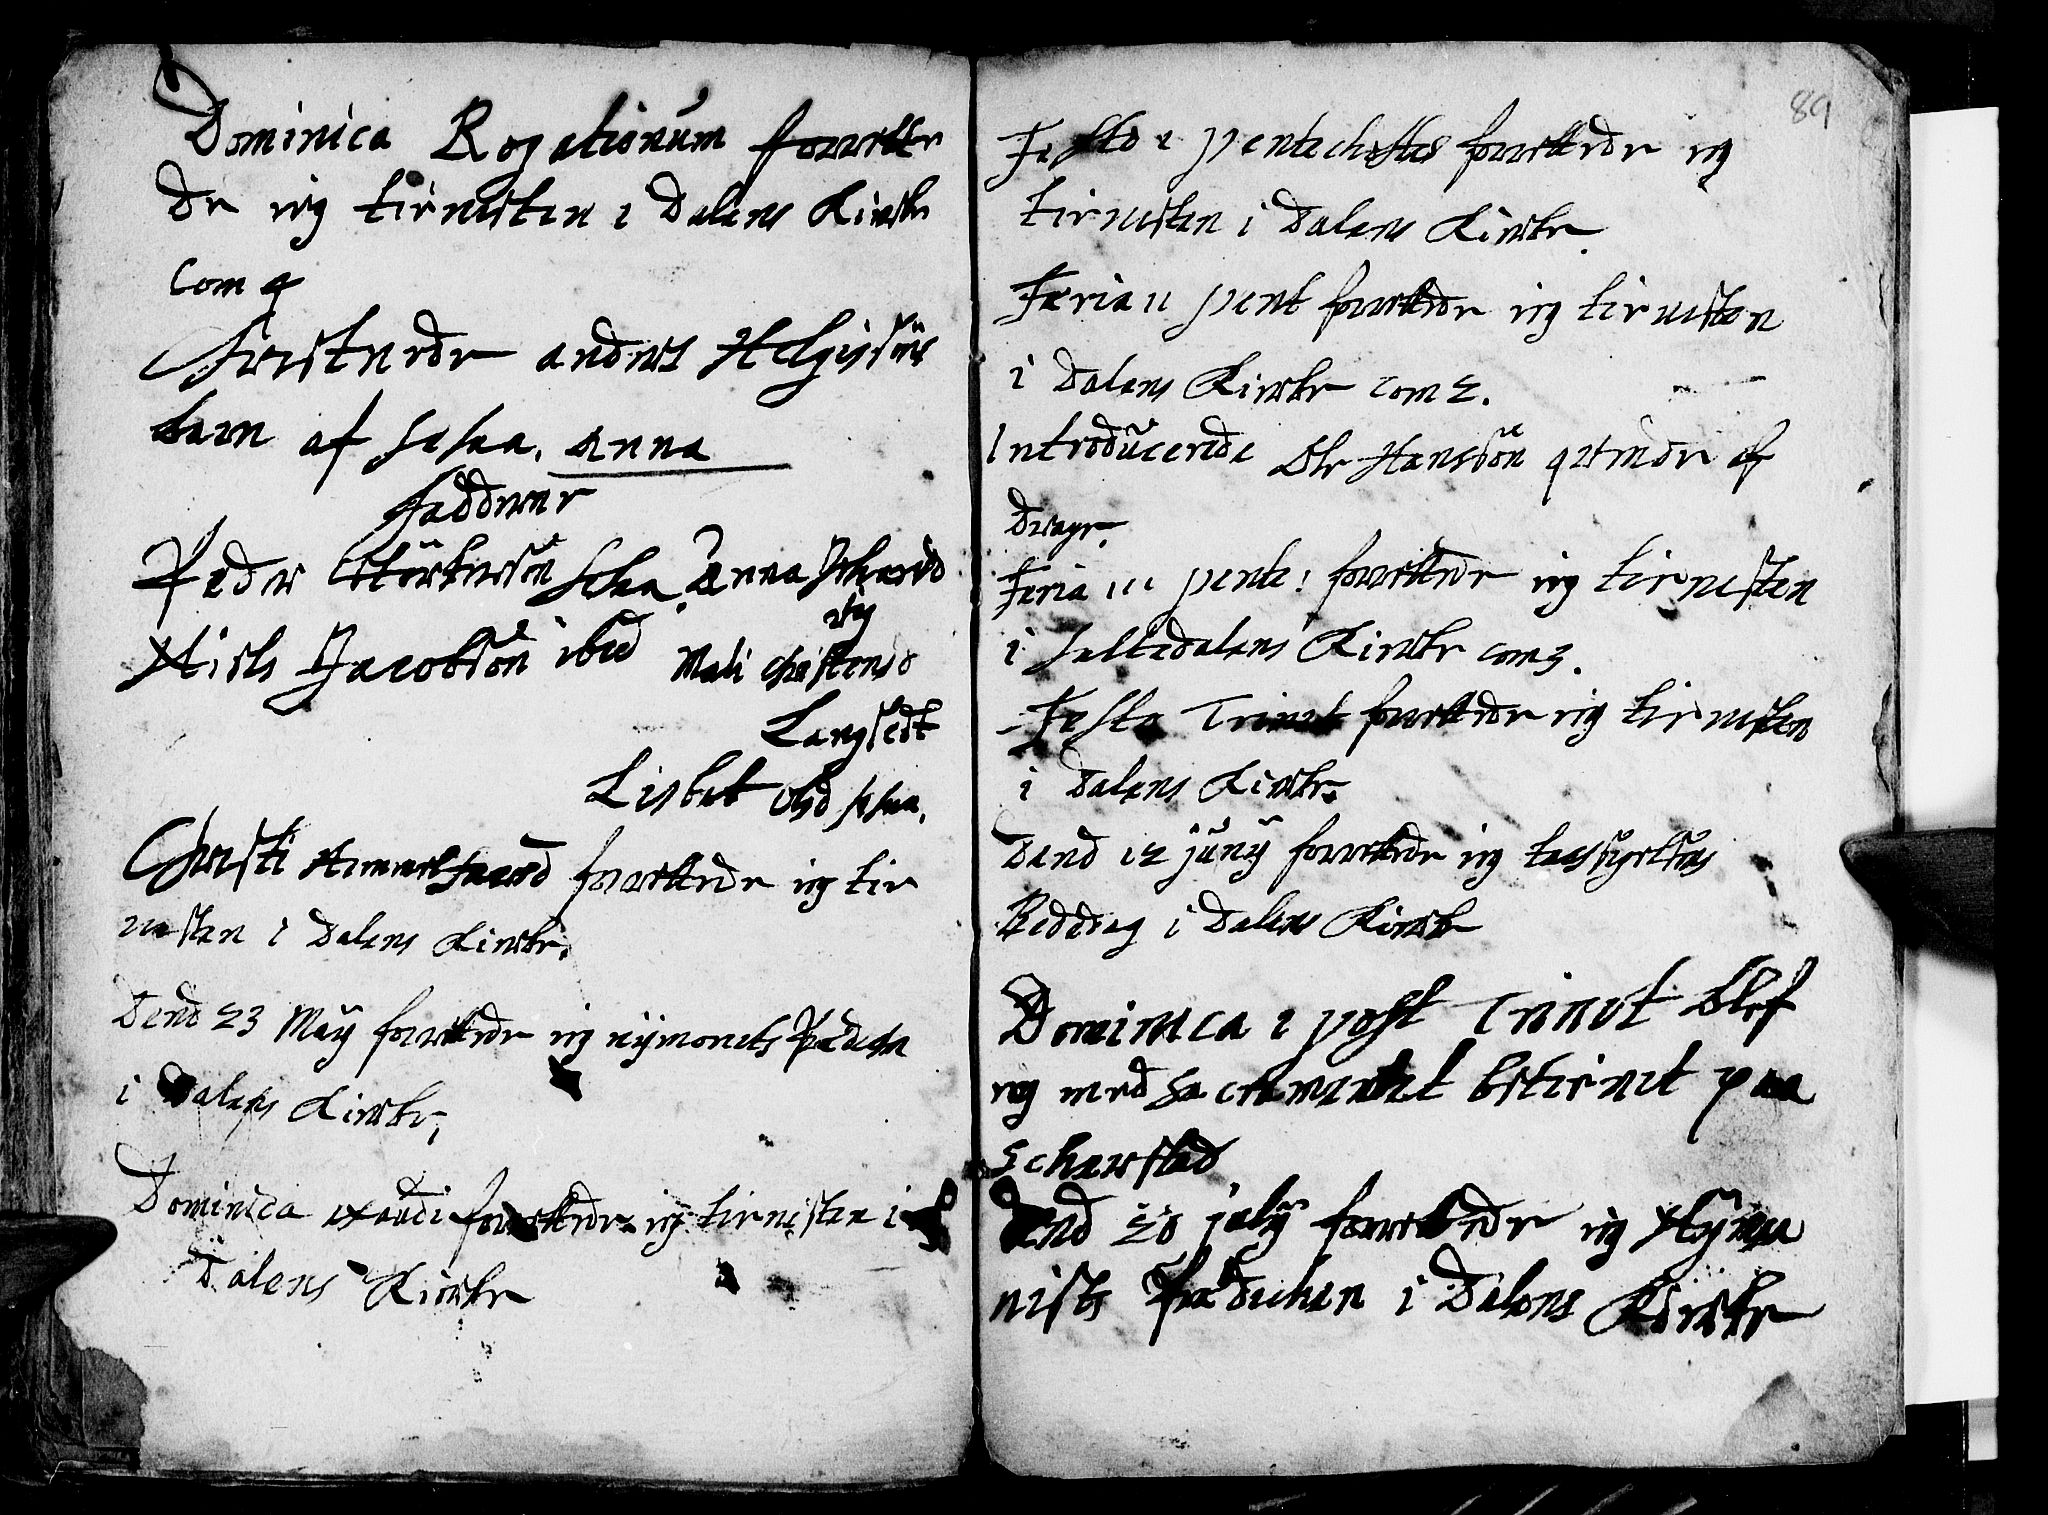 Dominica Rogationum forrette
de ieg tienesten i Dalens Kircke
Com 9
Christnede anders Helgesöns
barn af . anna
faddere
Peder Störkersön . Anna
Niels Jacobsön ibid Mali Christensd
Langsedt
Lisbet Olsd
Christi Himmelfaard forrettede ieg tie
nesten i Dalens Kircke.
Dend 23 Maÿ forrettede ieg nÿmonets Prædichen
i Dalens Kircke,
Dominica exaudi forrettede ieg tienesten i
Dalens Kircke
89
Festo Pentechostes forrettede ieg
tienesten i Dalens Kircke.
Feria 11 pent forrettede ieg tienesten
i Dalens Kircke Com 2.
Introducerede Ole Hansön qvinde af
Drage.
Feria 111 pente: forrettede ieg tienesten
i Saltedalens Kircke Com 3.
Festo Trinit forrettede ieg tienesten
i Dalens Kircke.
Dend 12 junÿ forrettede ieg
Bededag i Dalens Kircke
Dominica 1 post Trinit blef
ieg med Sacramentet betienet paa
Scherstad
Dend 20 julÿ forrettede ieg Nÿma
nists Prædichen i Dalens Kircke